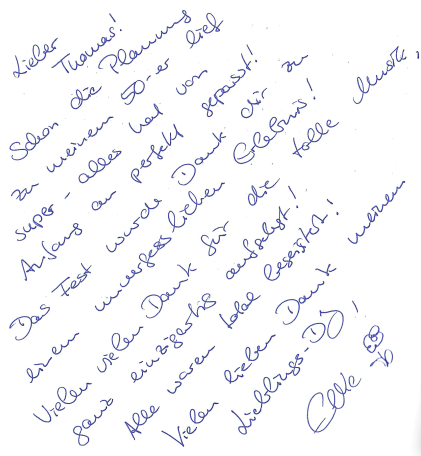 Lieber
Thomas!
Schon die Planung
zu meinem 50-er lief
super - alles hat von
Anfang an perfekt gepasst!
Das Fest wurde Dank dir zu
einem unvergesslichen Erlebnis!
Vielen vielen Dank für die tolle Musik,
ganz einzigartig aufgelegt!
Alle waren total begeistert!
Vielen lieben Dank meinem
Lieblings-DJ!
Elke